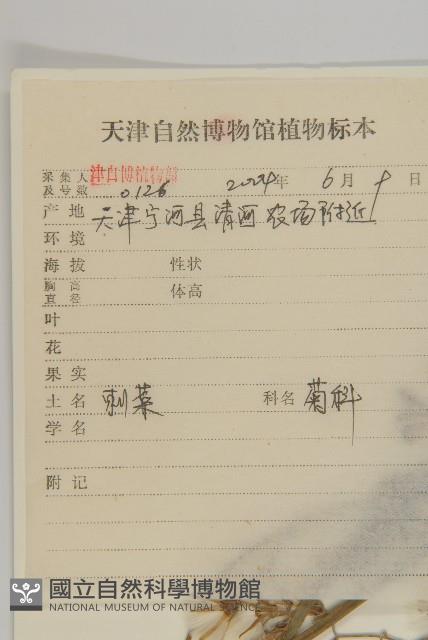 天津自然博物馆植物标本
采集人及号数 津自博植物部 0126 2004年 6月 日
产地 天津宁河县清河农场附近
环境
海拔 性状
胸高直径 体高
叶
花
果实
土名 刺菜 科名 菊科
学名
附记
國立自然科學博物館
NATIONAL MUSEUM OF NATURAL SCIENCE